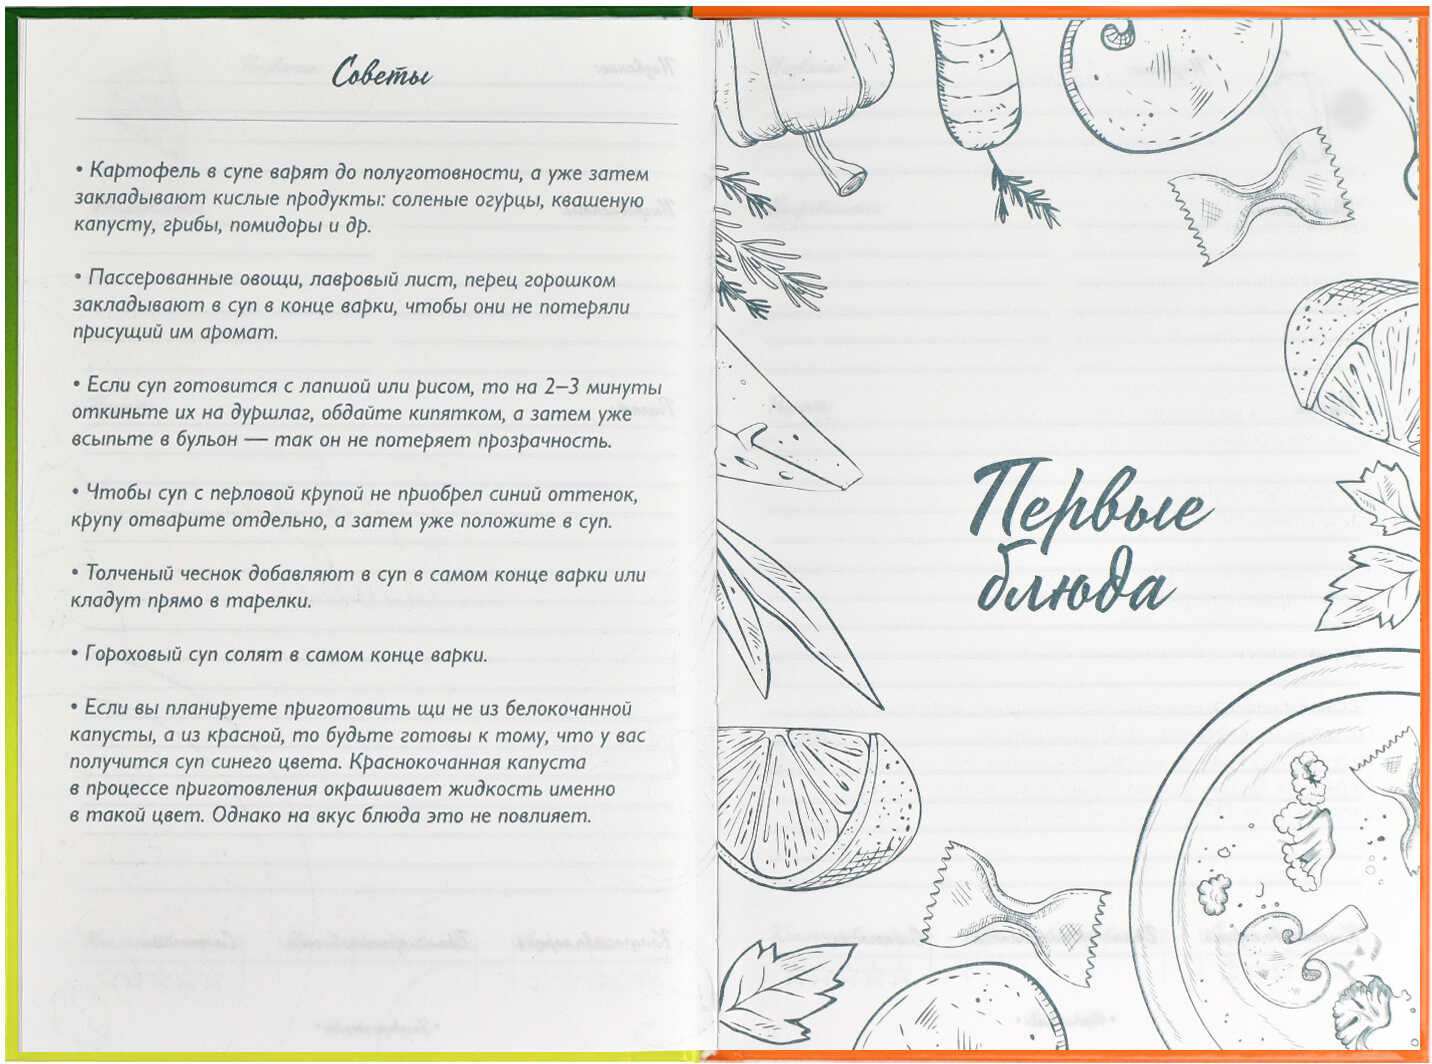 Советы
• Картофель в супе варят до полуготовности, а уже затем
закладывают кислые продукты: соленые огурцы, квашеную
капусту, грибы, помидоры и др.
• Пассерованные овощи, лавровый лист, перец горошком
закладывают в суп в конце варки, чтобы они не потеряли
присущий им аромат.
• Если суп готовится с лапшой или рисом, то на 2–3 минуты
откиньте их на дуршлаг, обдайте кипятком, а затем уже
всыпьте в бульон — так он не потеряет прозрачность.
• Чтобы суп с перловой крупой не приобрел синий оттенок,
крупу отварите отдельно, а затем уже положите в суп.
• Толченый чеснок добавляют в суп в самом конце варки или
кладут прямо в тарелки.
• Гороховый суп солят в самом конце варки.
• Если вы планируете приготовить щи не из белокочанной
капусты, а из красной, то будьте готовы к тому, что у вас
получится суп синего цвета. Краснокочанная капуста
в процессе приготовления окрашивает жидкость именно
в такой цвет. Однако на вкус блюда это не повлияет.
Первые
блюда